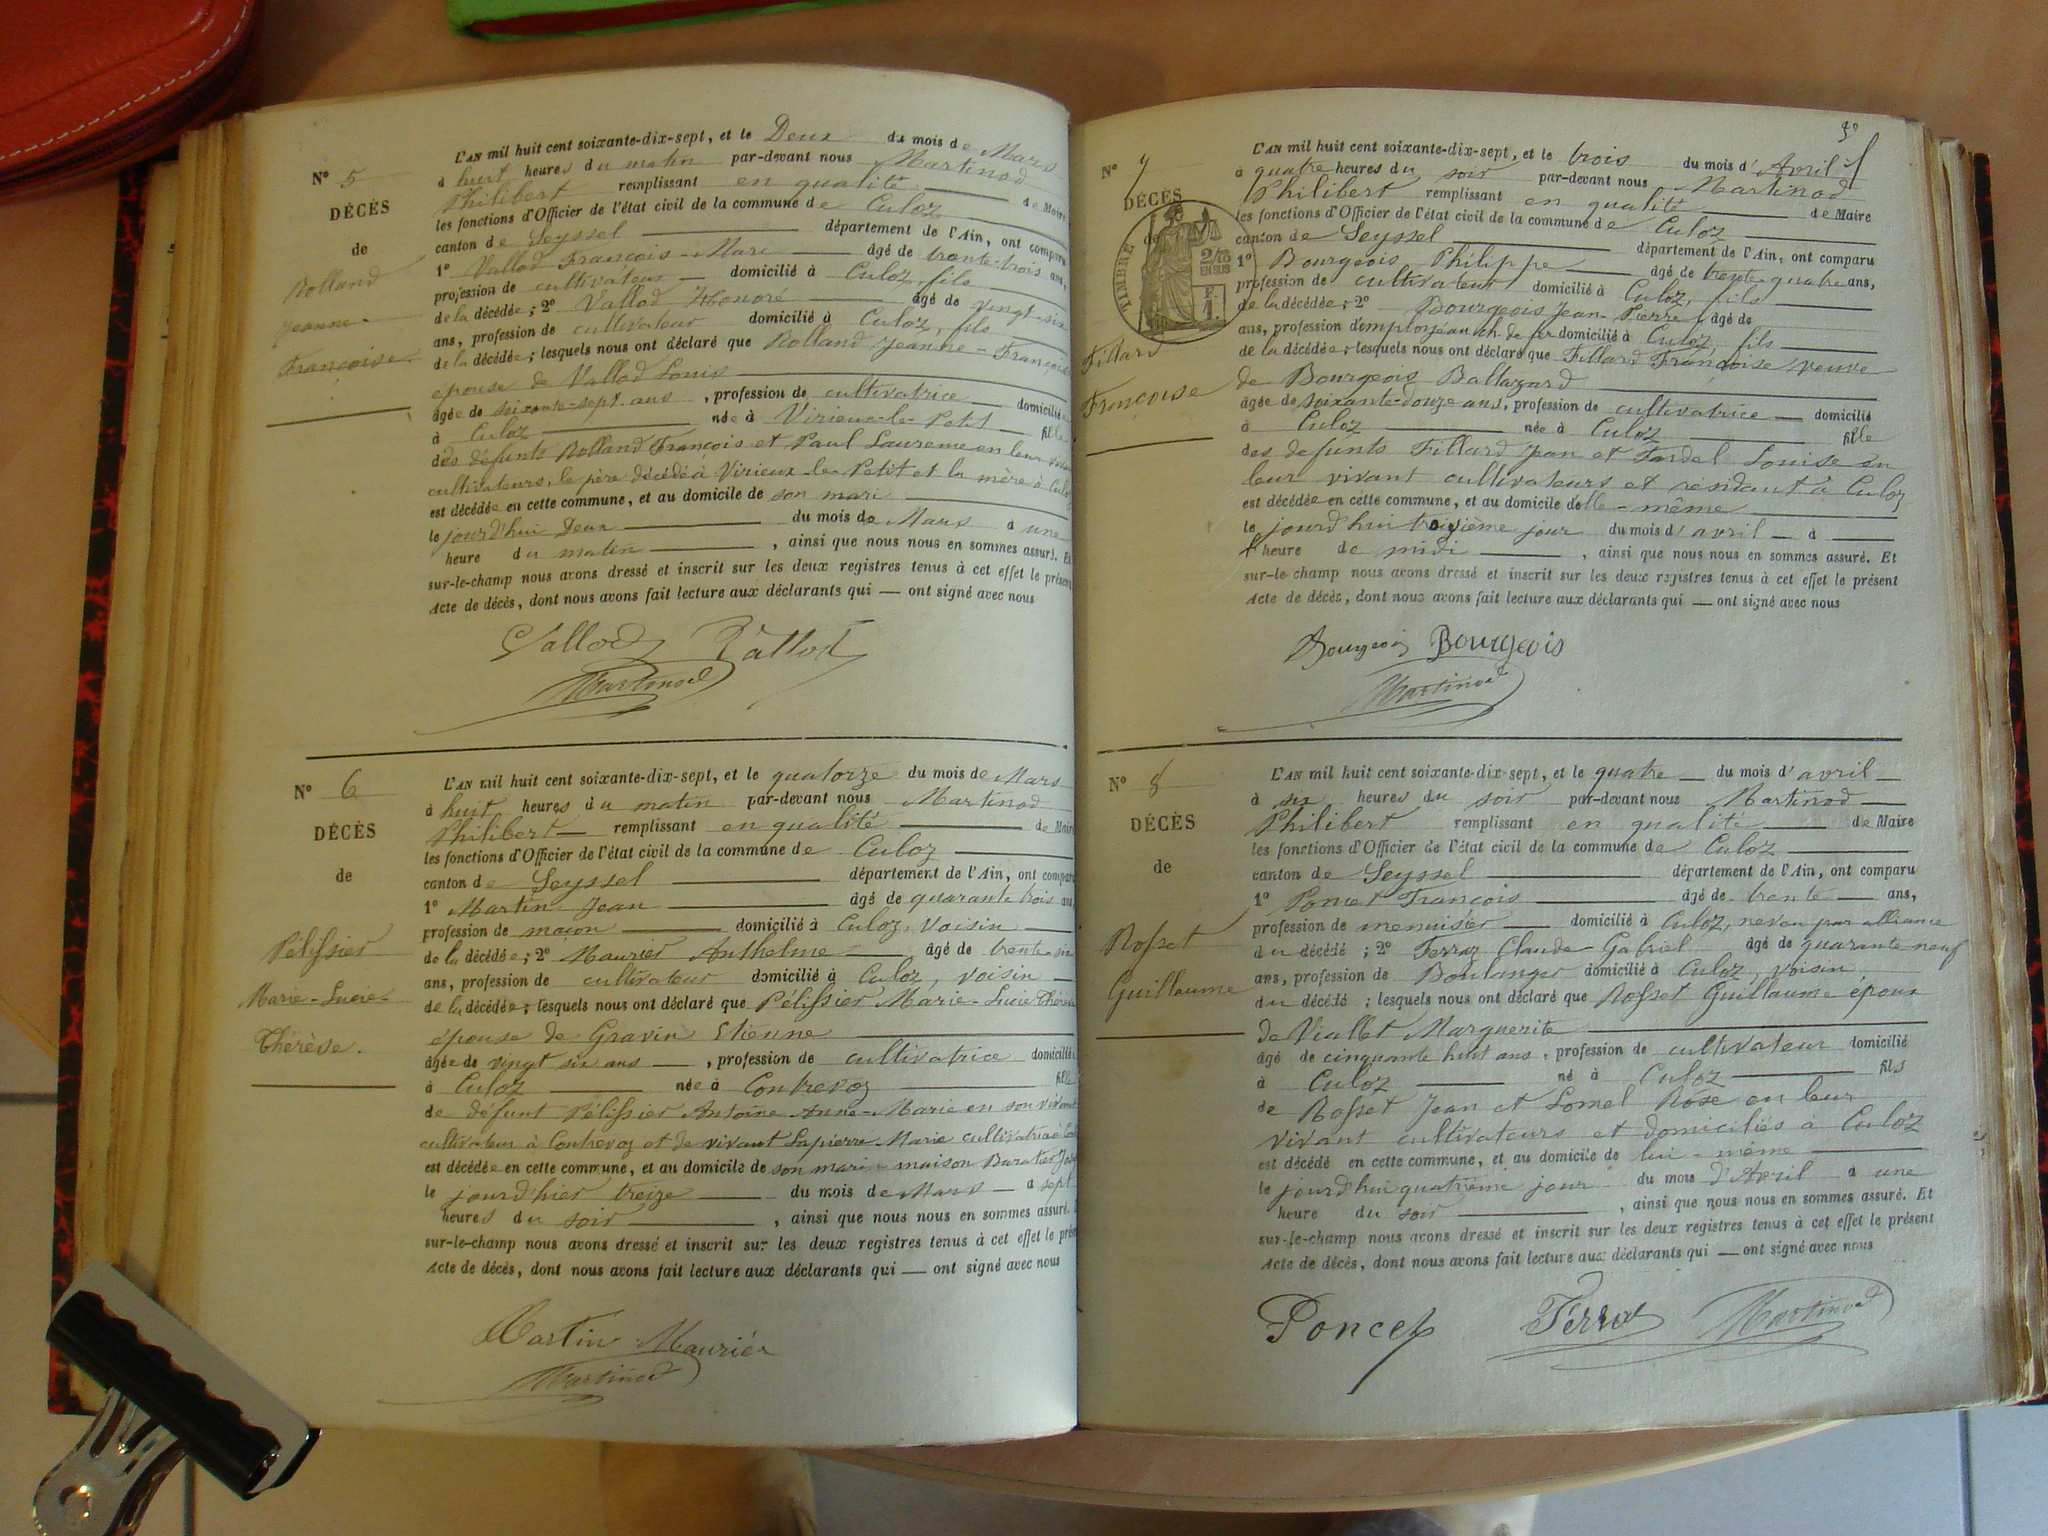 N° 5
DÉCÈS
de
Rolland
Jeanne-
Françoise
L'AN mil huit cent soixante-dix-sept, et le Deux du mois de Mars
à huit heures du matin par-devant nous Martinod
Philibert remplissant en qualité de Maire
les fonctions d'Officier de l'état civil de la commune de Culoz
canton de Seyssel département de l'Ain, ont comparu
1° Vallod François-Marie âgé de trente-trois ans,
profession de cultivateur domicilié à Culoz, fils
de la décédée; 2° Vallod Honoré âgé de vingt-six
ans, profession de cultivateur domicilié à Culoz, fils
de la décédée; lesquels nous ont déclaré que Rolland Jeanne-Françoise
épouse de Vallod Louis
âgée de soixante-sept ans, profession de cultivatrice domiciliée
à Culoz née à Virieux-le-Petit fille
des défunts Rolland François et Paul Laurence en leur vivant
cultivateurs, le père décédé à Virieux-le-Petit et la mère à Culoz
est décédée en cette commune, et au domicile de son mari
le jourd'hui Deux du mois de Mars à une
heure du matin, ainsi que nous nous en sommes assuré. Et
sur-le-champ nous avons dressé et inscrit sur les deux registres tenus à cet effet le présent
Acte de décès, dont nous avons fait lecture aux déclarants qui — ont signé avec nous
Vallod Vallod
Martinod
N° 6
DÉCÈS
de
Pélissier
Marie-Lucie-
Thérèse.
L'AN mil huit cent soixante-dix-sept, et le quatorze du mois de Mars
à huit heures du matin par-devant nous Martinod
Philibert remplissant en qualité de Maire
les fonctions d'Officier de l'état civil de la commune de Culoz
canton de Seyssel département de l'Ain, ont comparu
1° Martin Jean âgé de quarante trois ans,
profession de maçon domicilié à Culoz, voisin
de la décédée; 2° Maurier Anthelme âgé de trente-six
ans, profession de cultivateur domicilié à Culoz, voisin
de la décédée; lesquels nous ont déclaré que Pélissier Marie-Lucie Thérèse
épouse de Gravin Etienne
âgée de vingt six ans, profession de cultivatrice domiciliée
à Culoz née à Contrevoz fille
de défunt Pélissier Antoine Anne-Marie en son vivant
cultivateur à Contrevoz et de vivant Lapierre Marie cultivatrice à
est décédée en cette commune, et au domicile de son mari maison
le jourd'hier treize du mois de Mars à sept
heures du soir, ainsi que nous nous en sommes assuré.
sur-le-champ nous avons dressé et inscrit sur les deux registres tenus à cet effet le présent
Acte de décès, dont nous avons fait lecture aux déclarants qui — ont signé avec nous
Martin Maurier
Martinod
N° 7
DÉCÈS
de
TIMBRE
2/10
EN SUS
F.
1.
Fillard
Françoise
L'AN mil huit cent soixante-dix-sept, et le trois du mois d'Avril
à quatre heures du soir par-devant nous Martinod
Philibert remplissant en qualité de Maire
les fonctions d'Officier de l'état civil de la commune de Culoz
canton de Seyssel département de l'Ain, ont comparu
1° Bourgeois Philippe âgé de trente-quatre ans,
profession de cultivateur domicilié à Culoz, fils
de la décédée; 2° Bourgeois Jean-Pierre âgé de
ans, profession d'employé au ch. de fer domicilié à Culoz, fils
de la décédée; lesquels nous ont déclaré que Fillard Françoise veuve
de Bourgeois Baltazard
âgée de soixante-douze ans, profession de cultivatrice domicilié
à Culoz née à Culoz fille
des défunts Fillard Jean et Tardel Louise en
leur vivant cultivateurs et résidant à Culoz
est décédée en cette commune, et au domicile d'elle-même
le jourd'hui troisième jour du mois d'avril à
heure de midi, ainsi que nous nous en sommes assuré. Et
sur-le-champ nous avons dressé et inscrit sur les deux registres tenus à cet effet le présent
Acte de décès, dont nous avons fait lecture aux déclarants qui — ont signé avec nous
Bourgeois Bourgeois
Martinod
N° 8
DÉCÈS
de
Rosset
Guillaume
L'AN mil huit cent soixante-dix-sept, et le quatre du mois d'avril
à six heures du soir par-devant nous Martinod
Philibert remplissant en qualité de Maire
les fonctions d'Officier de l'état civil de la commune de Culoz
canton de Seyssel département de l'Ain, ont comparu
1° Poncet François âgé de trente ans,
profession de menuisier domicilié à Culoz, neveu par alliance
du décédé; 2° Ferraz Claude Gabriel âgé de quarante neuf
ans, profession de Boulanger domicilié à Culoz, voisin
du décédé; lesquels nous ont déclaré que Rosset Guillaume époux
de Viallet Marguerite
âgé de cinquante huit ans, profession de cultivateur domicilié
à Culoz né à Culoz fils
de Rosset Jean et Lomel Rose en leur
vivant cultivateurs et domiciliés à Culoz
est décédé en cette commune, et au domicile de lui-même
le jourd'hui quatrième jour du mois d'Avril à une
heure du soir, ainsi que nous nous en sommes assuré. Et
sur-le-champ nous avons dressé et inscrit sur les deux registres tenus à cet effet le présent
Acte de décès, dont nous avons fait lecture aux déclarants qui — ont signé avec nous
Poncet Ferraz Martinod